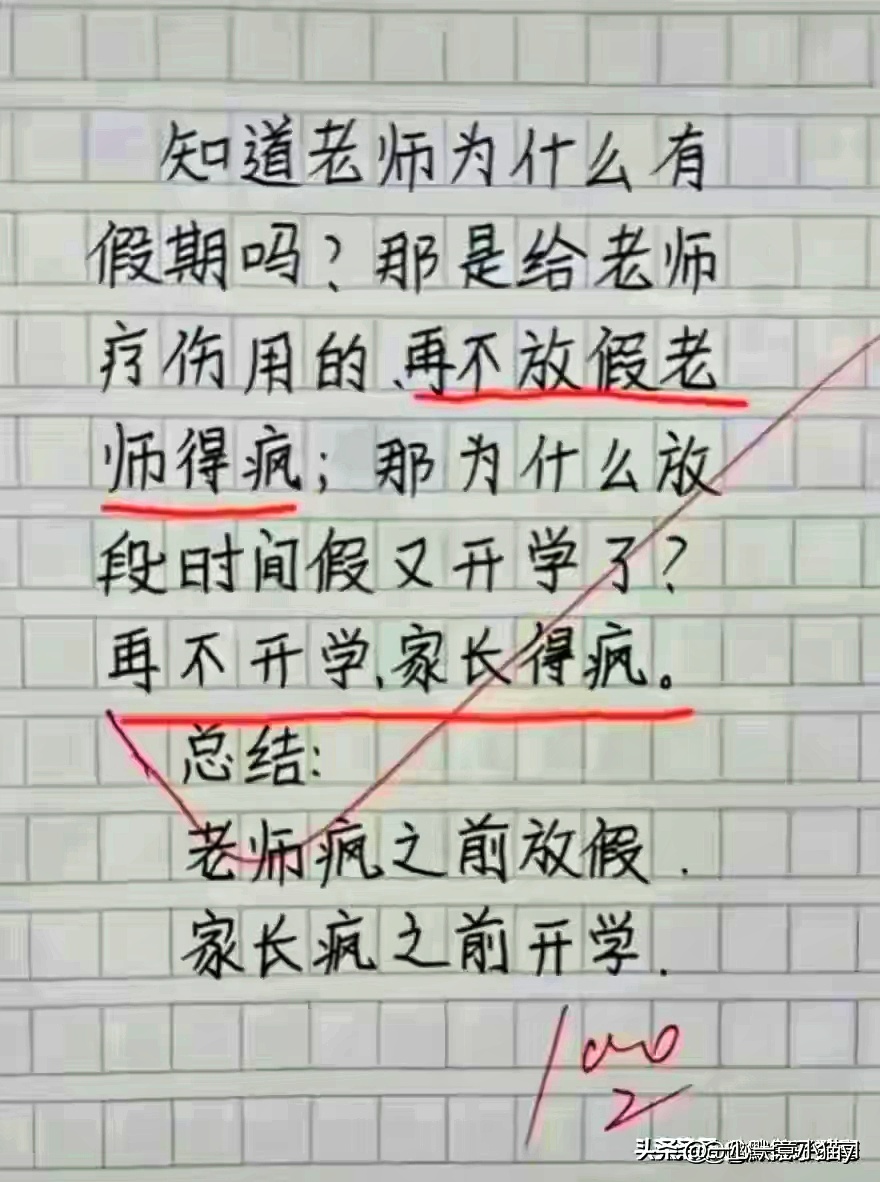 知道老师为什么有
假期吗？那是给老师
疗伤用的、再不放假老
师得疯；那为什么放
段时间假又开学了？
再不开学、家长得疯。
总结：
老师疯之前放假．
家长疯之前开学．
100
2